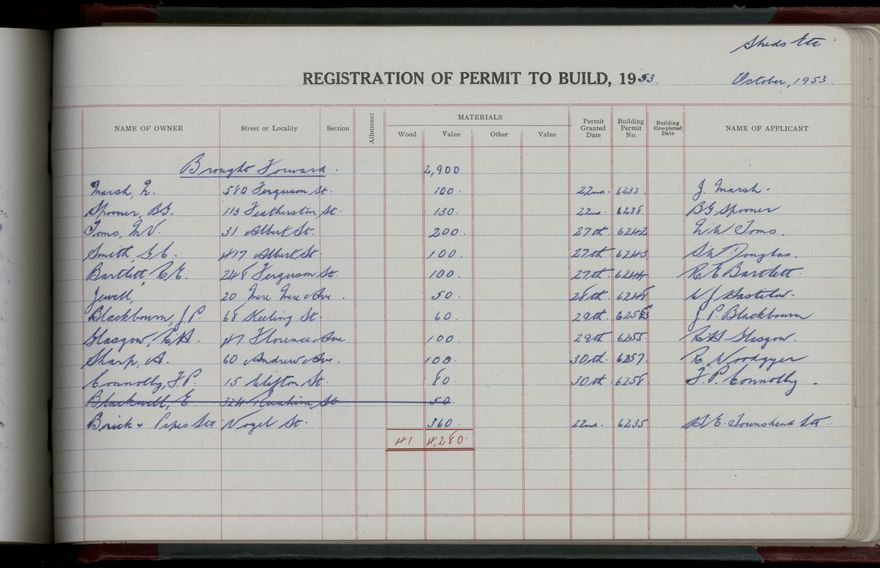 Sheds Etc
REGISTRATION OF PERMIT TO BUILD, 1953.
October, 1953
NAME OF OWNER Street or Locality Section Allotment MATERIALS Permit Granted Date Building Permit No. Building Completed Date NAME OF APPLICANT
Wood Value Other Value
Brought Forward. 2,900
Marsh, 580 Ferguson St. 100. 22nd. 6233. J. Marsh.
Spooner, B.G. 113 Featherston St. 130. 22nd. 6238. B G Spooner
Toms, 31 Albert St. 200. 27th 6242 Toms.
Smith, 417 Albert St 100. 27th 6243. Douglas.
Bartlett, R.E. 248 Ferguson St. 100. 27th. 6244 R.E Bartlett.
Jewell, 20 Mere Mere Ave. 50. 28th 6248.
Blackbourn, J.P. 68 Keeling St. 60. 29th J.P Blackbourn
Glasgow, R.H. 47 Florence Ave 100. 29th 6255. R H Glasgow.
Sharp, A. 60 Andrew Ave. 100. 30th. 6257. R. Woodgyer
Connolly, F.P. 15 Clifton St. 80. 30th 6258. F.P. Connolly.
Blackwell, E 324 St 50.
Brick & Pipes Ltd Vogel St. 360. 22nd. 6235. Townshend Ltd
41 4,280.